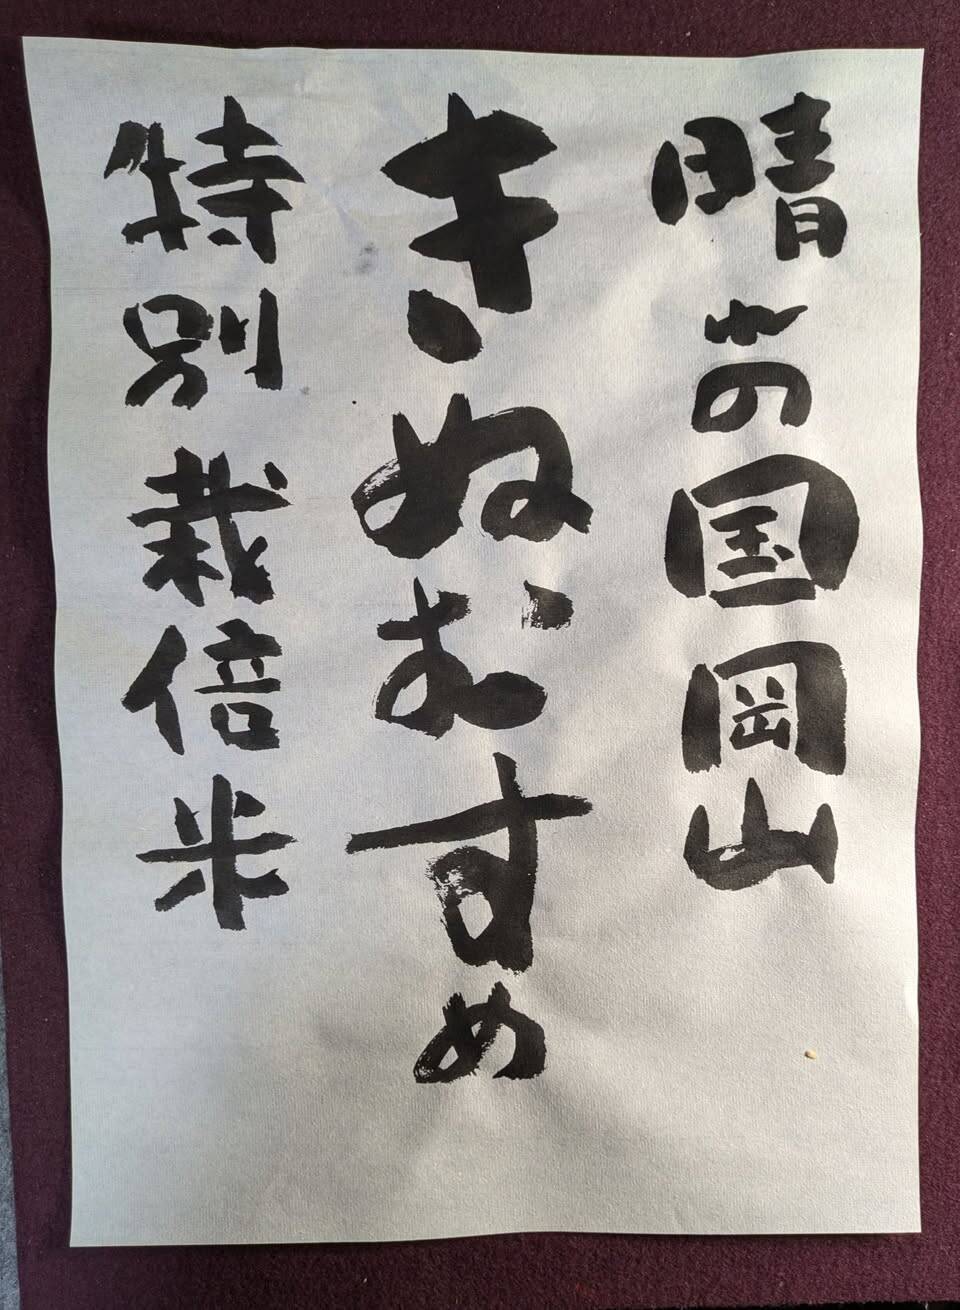 晴れの国岡山
きぬむすめ
特別栽倍米